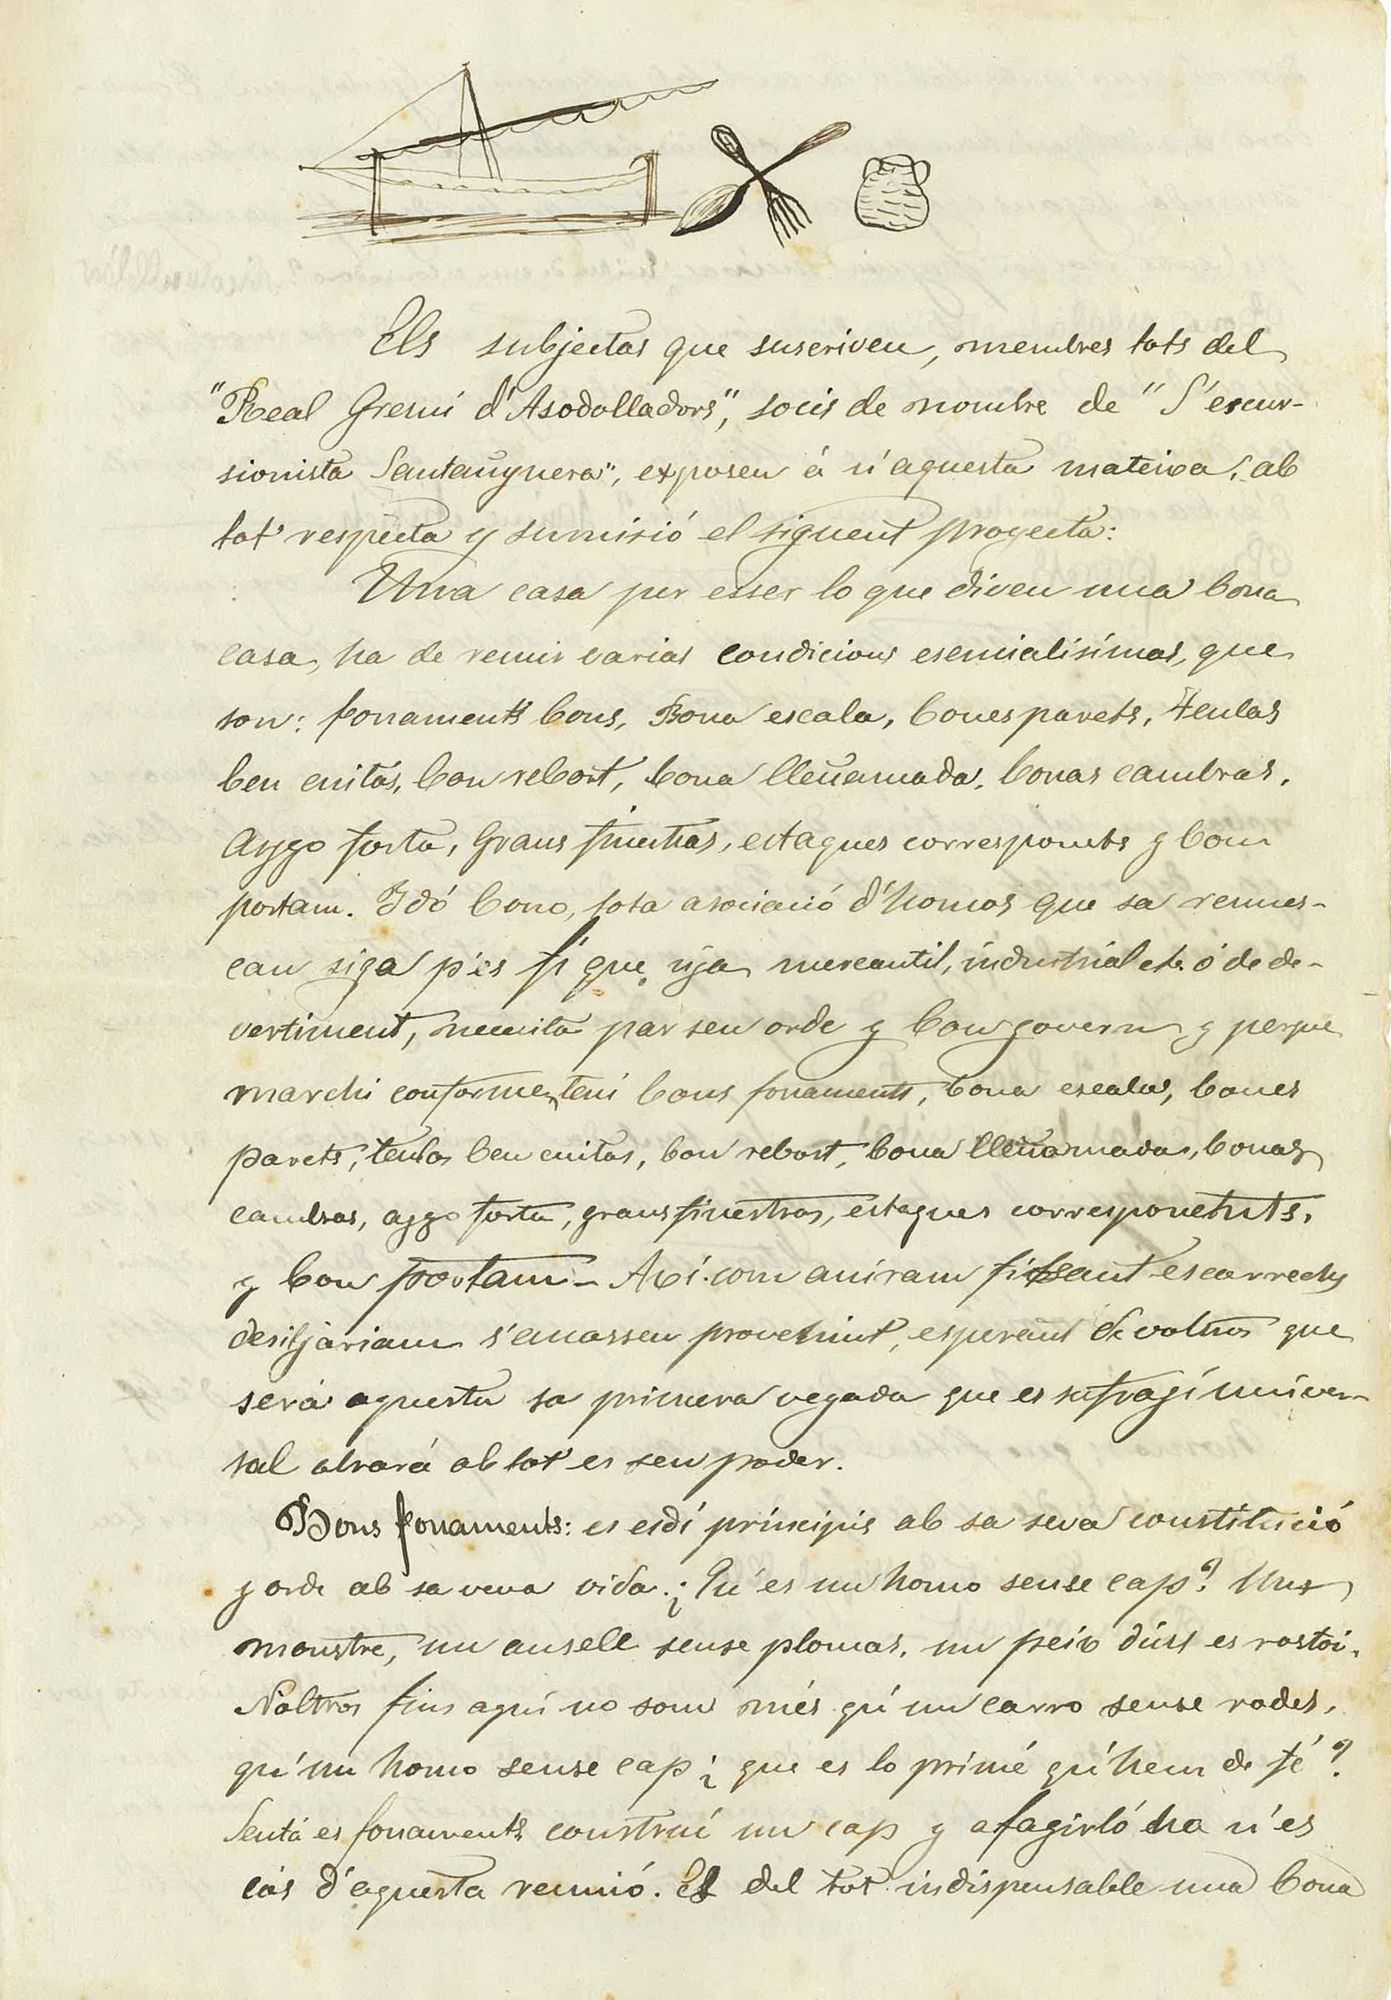 Els subjectas que suscriven, membres tots del
"Real Gremi d'Asodolladors", socis de nombre de "S'escur-
sionista Santañynera", exposen á n'aquesta mateixa, ab
tot respecta y sumisió el siguent proyecta:
Una casa per esser lo que diven una bona
casa, ha de reunir varias condicions esencialisimas, que
son: fonaments bons, Bona escala, bones parets, teulas
ben cuitas, bon rebost, bona lleñamada, bonas cambras,
Aygo forta, Grans finestras, estaques corresponents y bon
portam. Idó bono, tota asociació d'homos que sa reunes-
can siga p'es fi que siga mercantil, industrial etc ó de de-
vertiment, necesita par seu orde y bon govern y perque
marchi conforme, teni bons fonaments, bona escala, bones
parets, teulas ben cuitas, bon rebost, bona lleñamada, bonas
cambras, aygo forta, grans finestras, estaques corresponents,
y bon portam - Axí com aniram fixsant es carrechs
desitjáriam s'anassen provehint, esperant de voltros que
será aquesta sa primera vegada que es sufragi univer-
sal obrará ab tot es seu poder.
Bons fonaments: es esdí principis ab sa seva constitució
y orde ab sa veva vida. ¿Qu'es un homo sense cap? Un
monstre, un aucell sense plomas, un peix dins es rostoi.
Noltros fins aquí no som més qu'un carro sense rodes,
qu'un homo sense cap ¿que es lo primé qu'hem de fé?
Sentá es fonaments construí un cap y afagirló ha n'es
cós d'aquesta reunió. Es del tot indispensable una bona